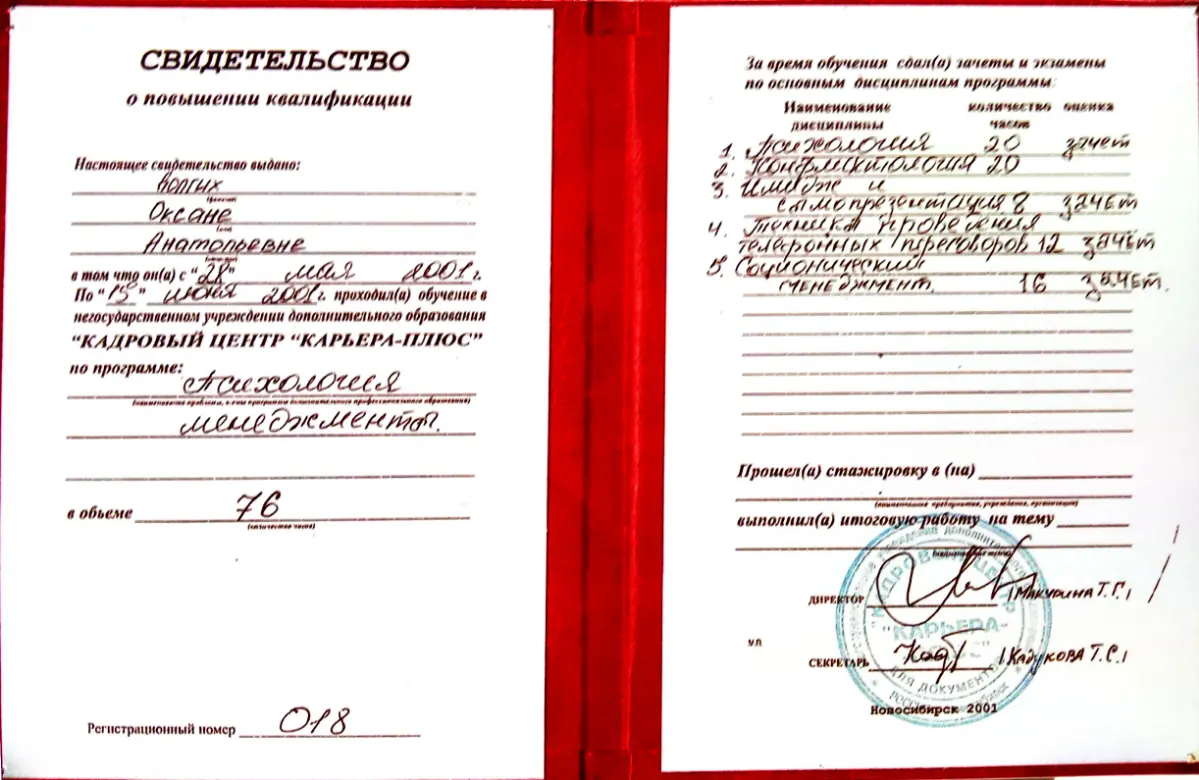 СВИДЕТЕЛЬСТВО
о повышении квалификации
Настоящее свидетельство выдано:
Долгих
Оксане
Анатольевне
в том что он(а) с "28" мая 2001 г.
По "15" июня 2001 г. проходил(а) обучение в
негосударственном учреждении дополнительного образования
"КАДРОВЫЙ ЦЕНТР "КАРЬЕРА-ПЛЮС"
по программе:
Психология
менеджмента.
в обьеме 76
(количество часов)
Регистрационный номер 018
За время обучения сдал(а) зачеты и экзамены
по основным дисциплинам программы:
Наименование количество оценка
дисциплины часов
1. Психология 20 зачет
2. Конфликтология 20
3. Имидж и
самопрезентация 8 зачет
4. Техника проведения
телефонных переговоров 12 зачет
5. Соционический
менеджмент. 16 зачет.
Прошел(а) стажировку в (на)
(наименование предприятия, учреждения, организации)
выполнил(а) итоговую работу на тему
ДИРЕКТОР /Макурина Т.Г./
УЛ
СЕКРЕТАРЬ /Кадукова Т.С./
"КАДРОВЫЙ ЦЕНТР
"КАРЬЕРА-
ДЛЯ ДОКУМЕНТОВ
Новосибирск 2001